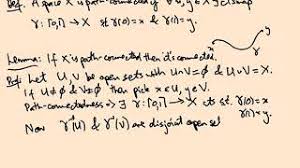 Def: A space X is path-connected if ∀ x,y ∈ X ∃ map
γ: [0,1] → X st γ(0)=x & γ(1)=y.
y
x
Lemma: If X is path-connected then it's connected.
Pf: Let U,V be open sets with U∩V=∅ & U∪V=X.
If U≠∅ & V≠∅ then pick x∈U, y∈V.
Path-connectedness ⇒ ∃ γ: [0,1] → X cts st. γ(0)=x
γ(1)=y.
Now γ⁻¹(U) & γ⁻¹(V) are disjoint open set